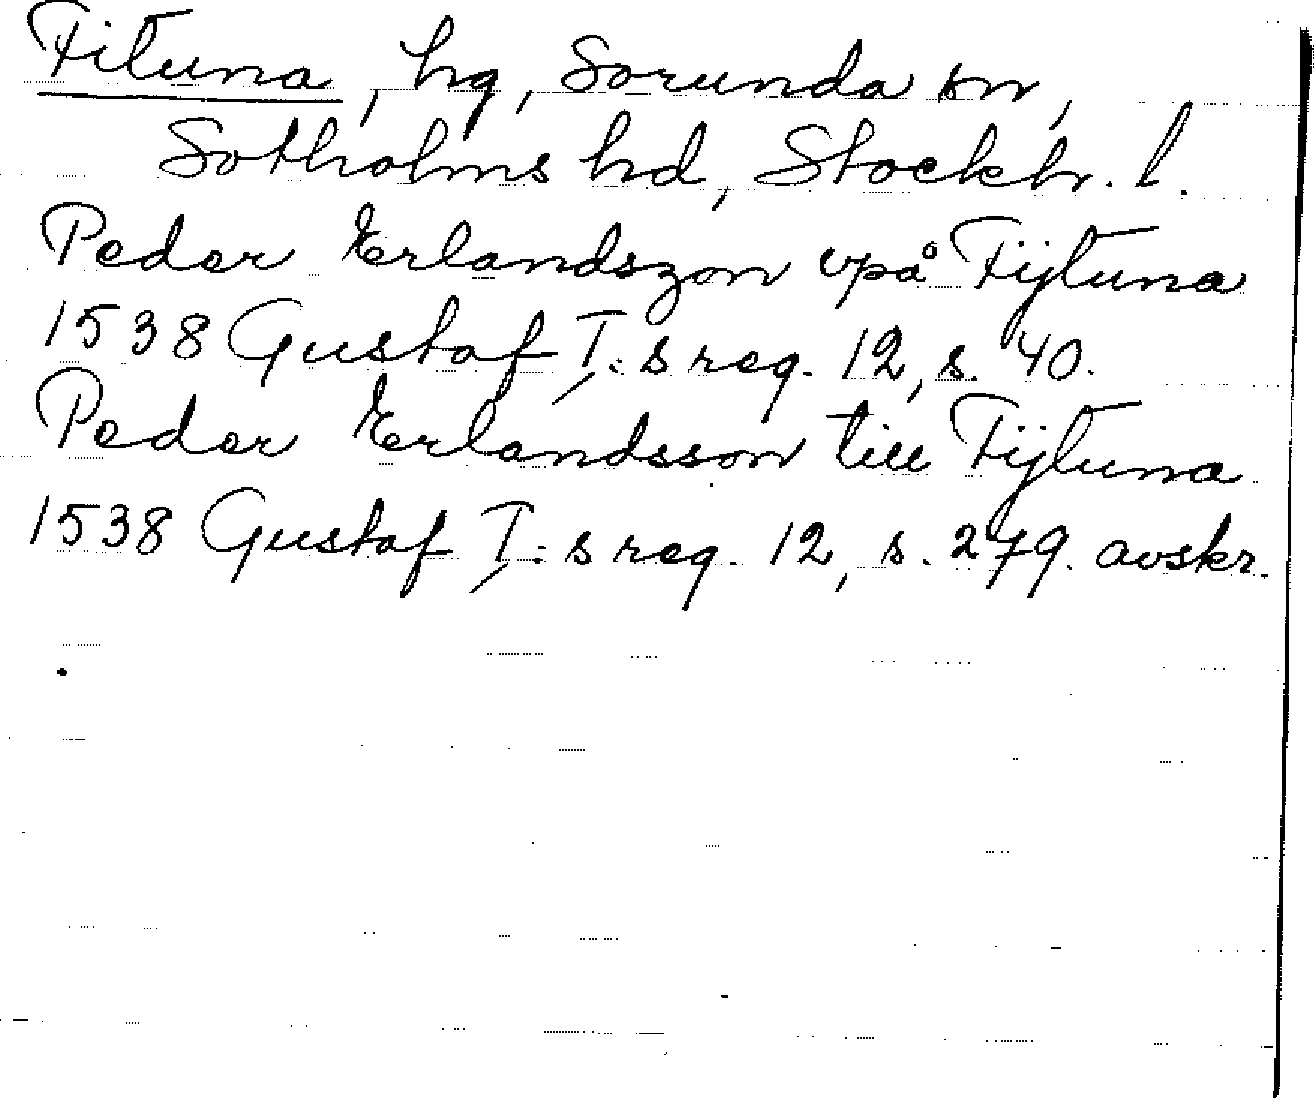 Fituna, hg, Sorunda sn,
Sotholms hd, Stockh. l.
Peder Erlandszon vpå Fijtuna
1538 Gustaf I:s reg. 12, s. 40.
Peder Erlandsson till Fijtuna
1538 Gustaf I:s reg. 12, s. 279. avskr.